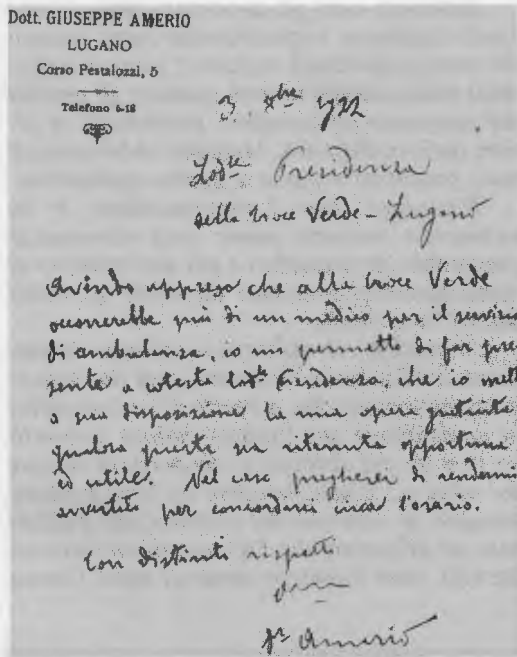 Dott. GIUSEPPE AMERIO
LUGANO
Corso Pestalozzi, 5
Telefono 6-18
3. Xbre 1922
Lodle Presidenza
della Croce Verde - Lugano
Avendo appreso che alla Croce Verde
occorrerebbe più di un medico per il servizio
di ambulanza, io mi permetto di far pre
sente a cotesta Lodle Presidenza, che io metto
a sua disposizione la mia opera gratuita
qualora questa sia ritenuta opportuna
ed utile. Nel caso pregherei di rendermi
avvertito per concordarci circa l'orario.
Con distinti rispetti
Dr Amerio